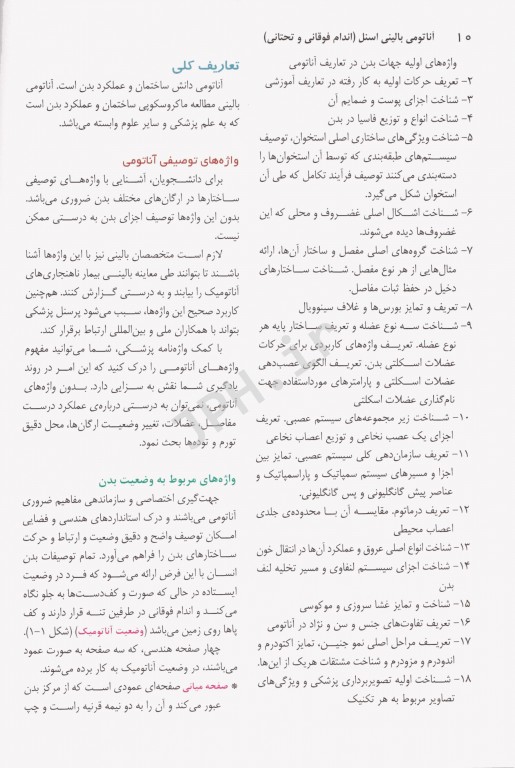 ۱۰ آناتومی بالینی اسنل (اندام فوقانی و تحتانی)
واژه‌های اولیه جهات بدن در تعاریف آناتومی
۲- تعریف حرکات اولیه به کار رفته در تعاریف آموزشی
۳- شناخت اجزای پوست و ضمایم آن
۴- شناخت انواع و توزیع فاسیا در بدن
۵- شناخت ویژگی‌های ساختاری اصلی استخوان، توصیف
سیستم‌های طبقه‌بندی که توسط آن استخوان‌ها را
دسته‌بندی می‌کنند توصیف فرآیند تکامل که طی آن
استخوان شکل می‌گیرد.
۶- شناخت اشکال اصلی غضروف و محلی که این
غضروف‌ها دیده می‌شوند.
۷- شناخت گروه‌های اصلی مفصل و ساختار آن‌ها، ارائه
مثال‌هایی از هر نوع مفصل. شناخت ساختارهای
دخیل در حفظ ثبات مفاصل.
۸- تعریف و تمایز بورس‌ها و غلاف سینوویال
۹- شناخت سه نوع عضله و تعریف ساختار پایه هر
نوع عضله. تعریف واژه‌های کاربردی برای حرکات
عضلات اسکلتی بدن. تعریف الگوی عصب‌دهی
عضلات اسکلتی و پارامترهای مورداستفاده جهت
نام‌گذاری عضلات اسکلتی
۱۰- شناخت زیر مجموعه‌های سیستم عصبی. تعریف
اجزای یک عصب نخاعی و توزیع اعصاب نخاعی
۱۱- تعریف سازمان‌دهی کلی سیستم عصبی. تمایز بین
اجزا و مسیرهای سیستم سمپاتیک و پاراسمپاتیک و
عناصر پیش گانگلیونی و پس گانگلیونی.
۱۲- تعریف درماتوم. مقایسه آن با محدوده‌ی جلدی
اعصاب محیطی
۱۳- شناخت انواع اصلی عروق و عملکرد آن‌ها در انتقال خون
۱۴- شناخت اجزای سیستم لنفاوی و مسیر تخلیه لنف
بدن
۱۵- شناخت و تمایز غشا سروزی و موکوسی
۱۶- تعریف تفاوت‌های جنس و سن و نژاد در آناتومی
۱۷- تعریف مراحل اصلی نمو جنین، تمایز اکتودرم و
اندودرم و مزودرم و شناخت مشتقات هریک از این‌ها.
۱۸- شناخت اولیه تصویربرداری پزشکی و ویژگی‌های
تصاویر مربوط به هر تکنیک
تعاریف کلی
آناتومی دانش ساختمان و عملکرد بدن است. آناتومی
بالینی مطالعه ماکروسکوپی ساختمان و عملکرد بدن است
که به علم پزشکی و سایر علوم وابسته می‌باشد.
واژه‌های توصیفی آناتومی
برای دانشجویان، آشنایی با واژه‌های توصیفی
ساختارها در ارگان‌های مختلف بدن ضروری می‌باشد.
بدون این واژه‌ها توصیف اجزای بدن به درستی ممکن
نیست.
لازم است متخصصان بالینی نیز با این واژه‌ها آشنا
باشند تا بتوانند طی معاینه بالینی بیمار ناهنجاری‌های
آناتومیک را بیابند و به درستی گزارش کنند. هم‌چنین
کاربرد صحیح این واژه‌ها، سبب می‌شود پرسنل پزشکی
بتواند با همکاران ملی و بین‌المللی ارتباط برقرار کند.
با کمک واژه‌نامه پزشکی، شما می‌توانید مفهوم
واژه‌های آناتومی را درک کنید که این امر در روند
یادگیری شما نقش به سزایی دارد. بدون واژه‌های
آناتومی، نمی‌توان به درستی درباره‌ی عملکرد درست
مفاصل، عضلات، تغییر وضعیت ارگان‌ها، محل دقیق
تورم و توده‌ها بحث نمود.
واژه‌های مربوط به وضعیت بدن
جهت‌گیری اختصاصی و سازماندهی مفاهیم ضروری
آناتومی می‌باشند و درک استانداردهای هندسی و فضایی
امکان توصیف واضح و دقیق وضعیت و ارتباط و حرکت
ساختارهای بدن را فراهم می‌آورد. تمام توصیفات بدن
انسان با این فرض ارائه می‌شود که فرد در وضعیت
ایستاده در حالی که صورت و کف‌دست‌ها به جلو نگاه
می‌کند و اندام فوقانی در طرفین تنه قرار دارند و کف
پاها روی زمین می‌باشد (وضعیت آناتومیک) (شکل ۱-۱).
چهار صفحه هندسی، که سه صفحه به صورت عمود
می‌باشند، در وضعیت آناتومیک به کار برده می‌شوند.
* صفحه میانی صفحه‌ای عمودی است که از مرکز بدن
عبور می‌کند و آن را به دو نیمه قرنیه راست و چپ